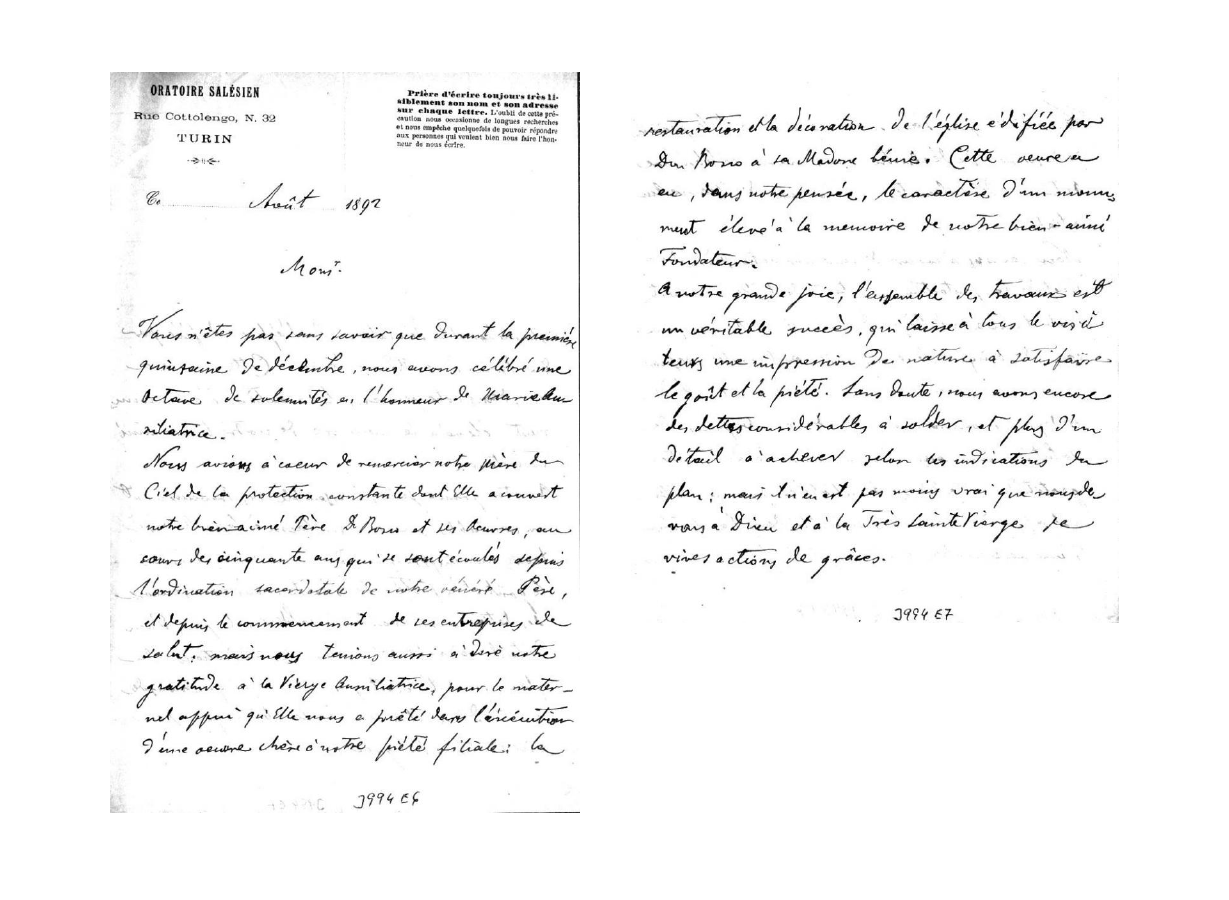 ORATOIRE SALÉSIEN
Rue Cottolengo, N. 32
TURIN
Prière d'écrire toujours très li-
siblement son nom et son adresse
sur chaque lettre. L'oubli de cette pré-
caution nous occasionne de longues recherches
et nous empêche quelquefois de pouvoir répondre
aux personnes qui veulent bien nous faire l'hon-
neur de nous écrire.
Ce Août 1892
Monsr.
Vous n'êtes pas sans savoir que durant la première
quinzaine de décembre, nous avons célébré une
Octave de solemnités en l'honneur de Marie Au
xiliatrice.
Nous avions à coeur de remercier notre Mère du
Ciel de la protection constante dont Elle a couvert
notre bien aimé Père D. Bosco et ses Oeuvres, au
cours des cinquante ans qui se sont écoulés depuis
l'ordination sacerdotale de notre vénéré Père,
et depuis le commencement de ses entreprises de
salut. mais nous tenions aussi à dire notre
gratitude à la Vierge Auxiliatrice, pour le mater-
nel appui qu'Elle nous a prêté dans l'éxécution
d'une oeuvre chère à notre piété filiale: la
J994 E6
restauration et la décoration de l'église édifiée par
Don Bosco à sa Madone bénie. Cette oeuvre a
eu, dans notre pensée, le caractère d'un monu
ment élevé à la memoire de notre bien-aimé
Fondateur.
A notre grande joie, l'ensemble des travaux est
un véritable succès, qui laisse à tous le visi
teurs une impression de nature à satisfaire
le goût et la piété. Sans doute, nous avons encore
des dettes considérables à solder, et plus d'un
détail à achever selon les indications du
plan; mais il n'en est pas moins vrai que nous de
vons à Dieu et à la Très Sainte Vierge de
vives actions de grâces.
J994 E7